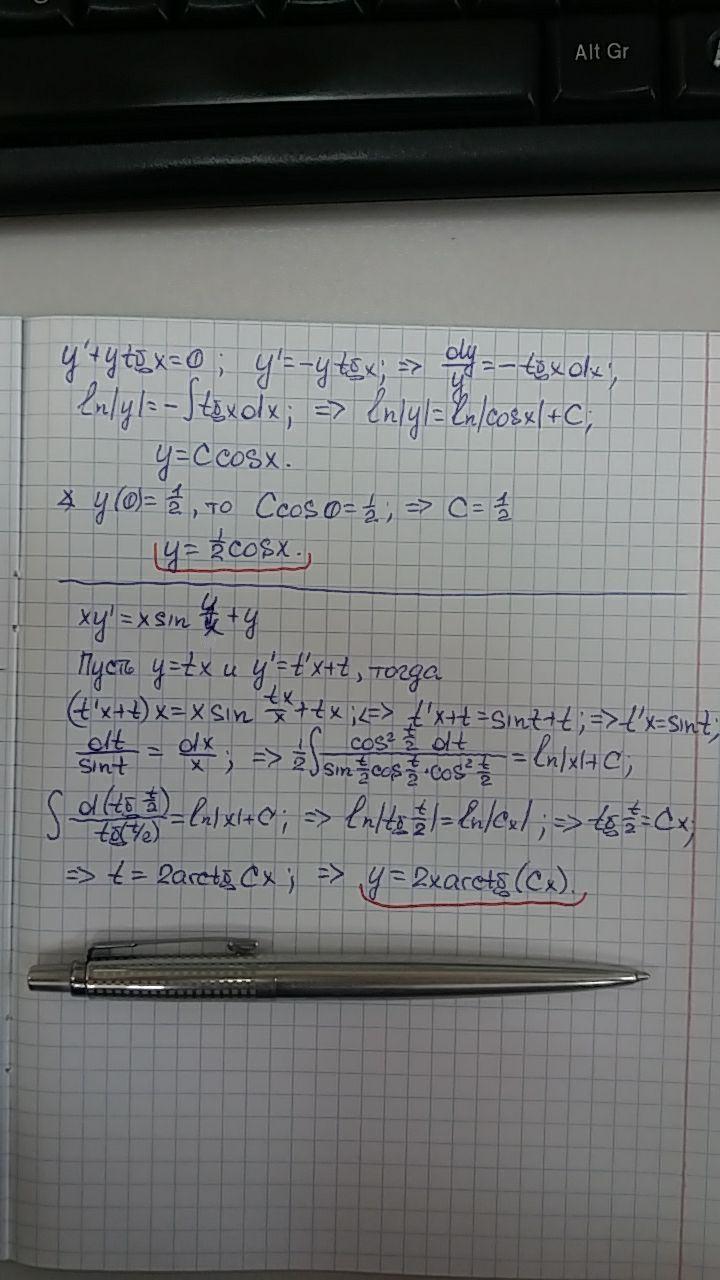 Alt Gr
y'+ytgx=0; y'=-ytgx; => dy/y=-tgxdx;
ln|y|=-∫tgxdx; => ln|y|=ln|cosx|+C;
y=Ccosx.
y(0)=1/2, то Ccos0=1/2; => C=1/2
y=1/2cosx.
xy'=xsin y/x+y
Пусть y=tx и y'=t'x+t, тогда
(t'x+t)x=xsin tx/x+tx; <=> t'x+t=sint+t; => t'x=sint;
dt/sint=dx/x; => 1/2∫cos² t/2 dt/(sin t/2 cos t/2·cos² t/2)=ln|x|+C;
∫d(tg t/2)/tg(t/2)=ln|x|+C; => ln|tg t/2|=ln|Cx|; => tg t/2=Cx;
=> t=2arctgCx; => y=2xarctg(Cx).